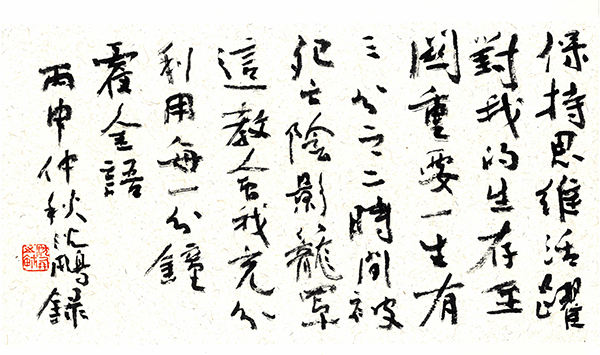 保持思維活躍
對我的生存至
關重要一生有
三分之二時間被
死亡陰影籠罩
這教会我充分
利用每一分鐘
霍金語
丙申仲秋沈鵬錄